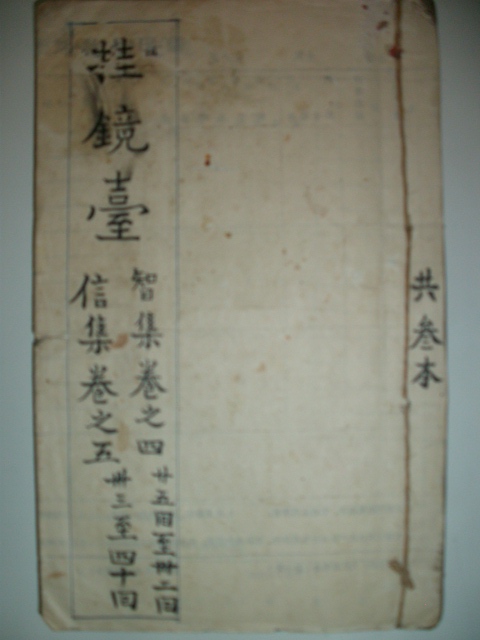 共叁本
鏡臺
智集卷之四 廿五回至卅二回
信集卷之五 卅三至四十回